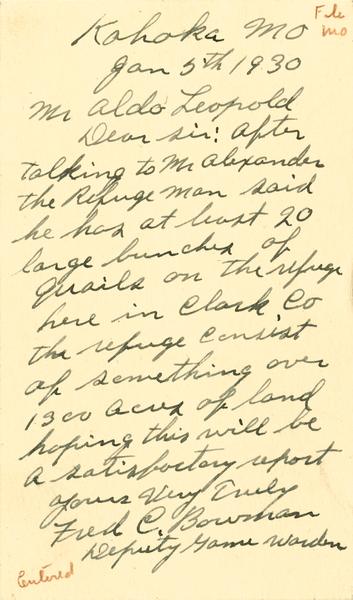 File
Mo
Kahoka Mo
Jan 5th 1930
Mr Aldo Leopold
Dear sir: After
talking to Mr Alexander
the Refuge man said
he has at least 20
large bunches of
Quails on the refuge
here in Clark Co
the refuge consist
of something over
1300 acres of land
hoping this will be
a satisfactory report
yours Very Truly
Fred C. Bowman
Deputy Game Warden
Entered